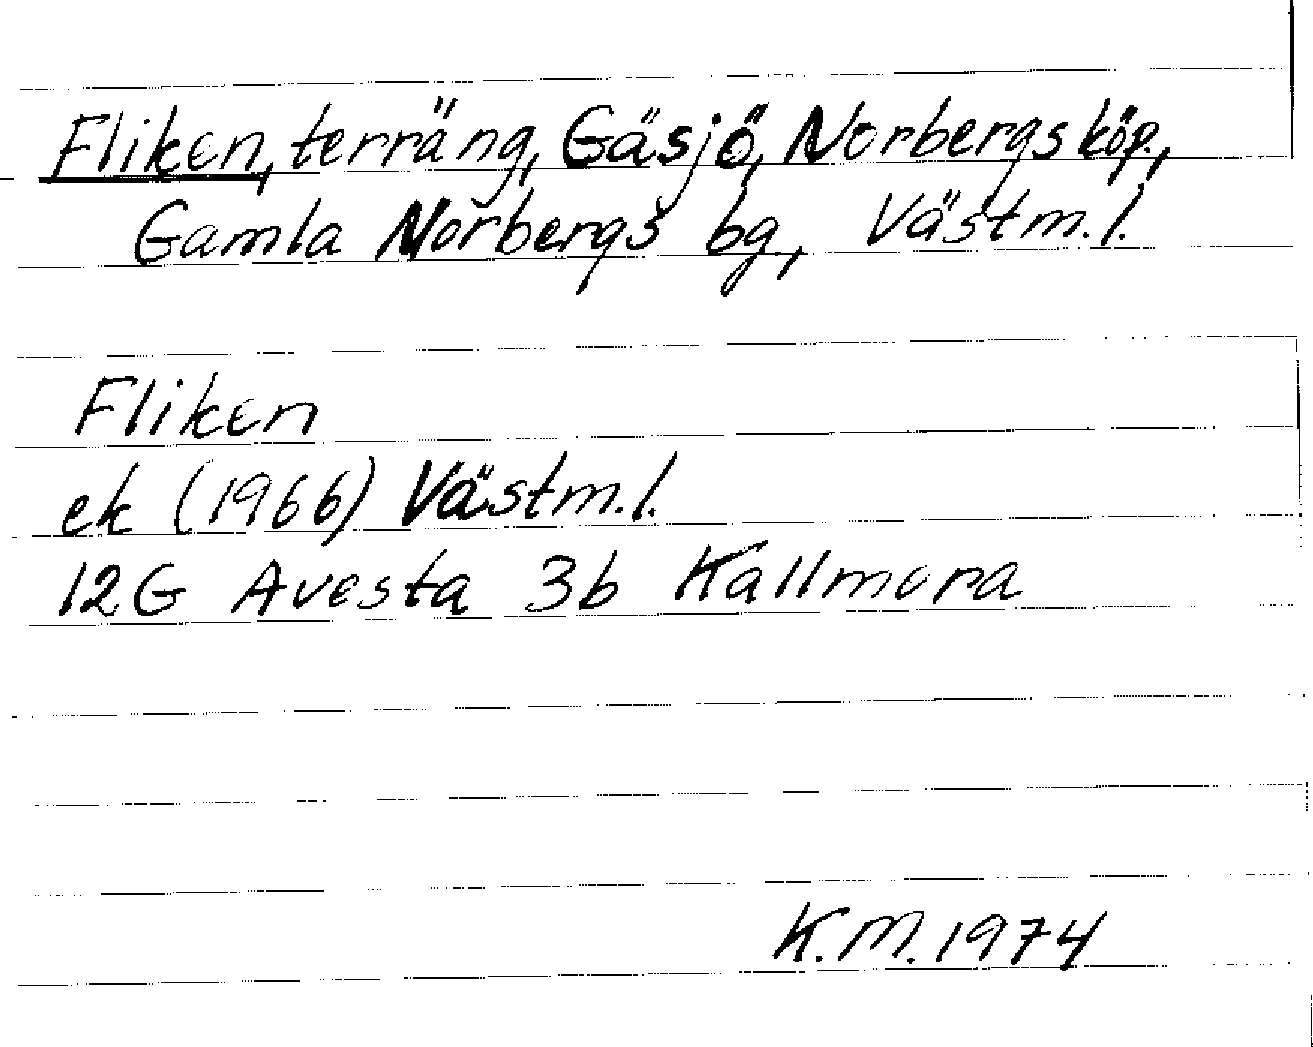 Fliken, terräng, Gäsjö, Norbergs köp.,
Gamla Norbergs bg, Västm.l.
Fliken
ek (1966) Västm.l.
12G Avesta 3b Kallmora
K.M. 1974